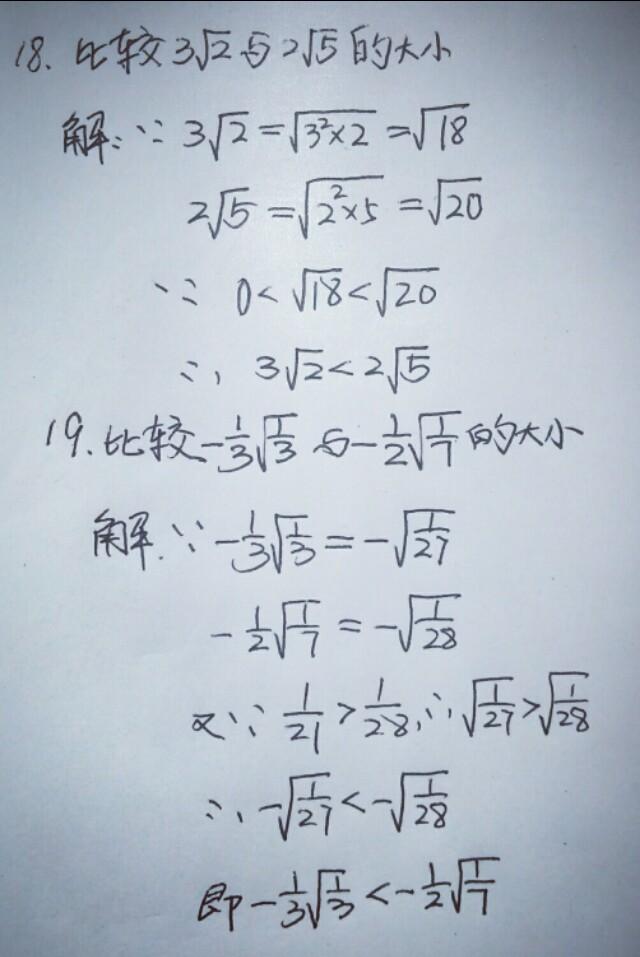 18. 比较3√2与2√5的大小
解: ∵ 3√2=√(3²×2)=√18
2√5=√(2²×5)=√20
∵ 0<√18<√20
∴ 3√2<2√5
19. 比较-1/3√(1/3)与-1/2√(1/7)的大小
解. ∵ -1/3√(1/3)=-√(1/27)
-1/2√(1/7)=-√(1/28)
又∵ 1/21>1/28, ∴√(1/27)>√(1/28)
∴ -√(1/27)<-√(1/28)
即-1/3√(1/3)<-1/2√(1/7)